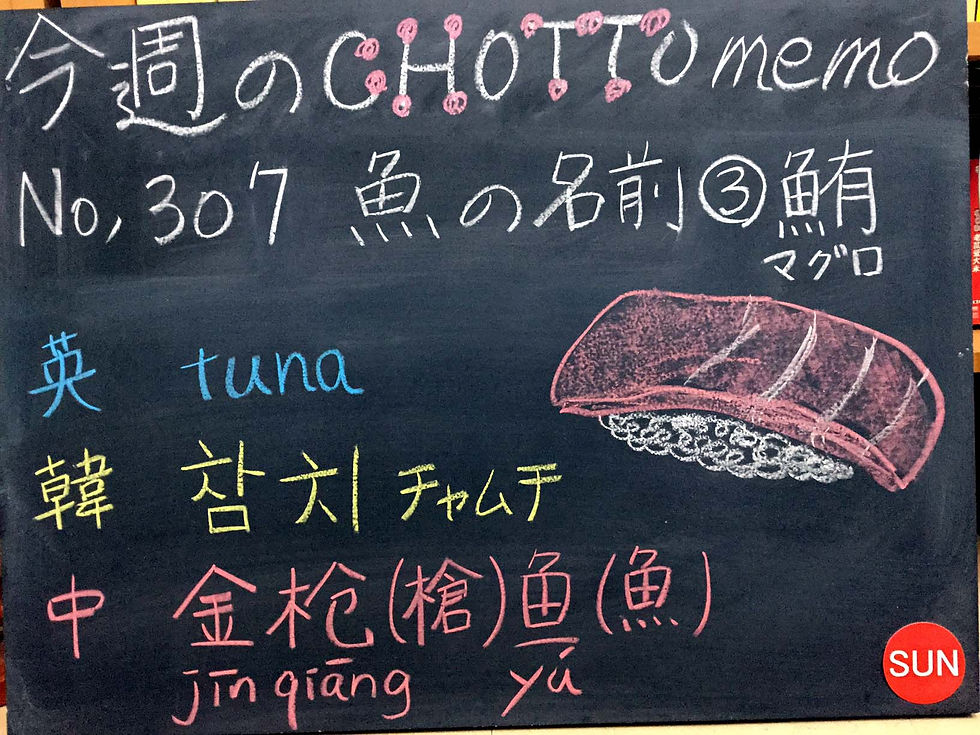 今週のCHOTTO memo
No, 307 魚の名前③鮪
マグロ
英 tuna
韓 참치 チャムチ
中 金枪(槍)鱼(魚)
jīn qiāng yú
SUN